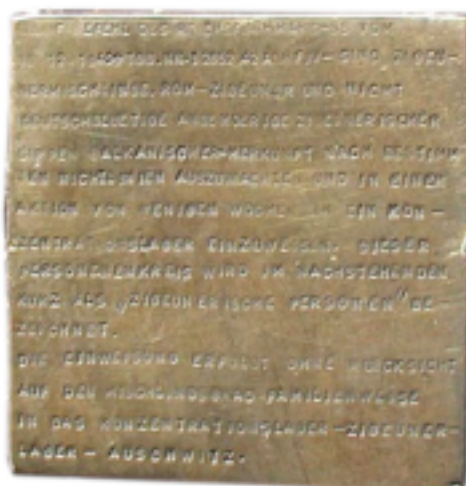 BEFEHL DES REICHSFÜHRERS SS VOM
16.12.1942 SIND ZIGEU-
NERMISCHLINGE, RÓM-ZIGEUNER UND NICHT
DEUTSCHBLÜTIGE ANGEHÖRIGE ZIGEUNERISCHER
SIPPEN BALKANISCHER HERKUNFT NACH BESTIMM-
TEN RICHTLINIEN AUSZUWÄHLEN UND IN EINER
AKTION VON WENIGEN WOCHEN IN EIN KON-
ZENTRATIONSLAGER EINZUWEISEN. DIESER
PERSONENKREIS WIRD IM NACHSTEHENDEN
KURZ ALS „ZIGEUNERISCHE PERSONEN" BE-
ZEICHNET.
DIE EINWEISUNG ERFOLGT OHNE RÜCKSICHT
AUF DEN MISCHLINGSGRAD FAMILIENWEISE
IN DAS KONZENTRATIONSLAGER-ZIGEUNER-
LAGER-AUSCHWITZ.